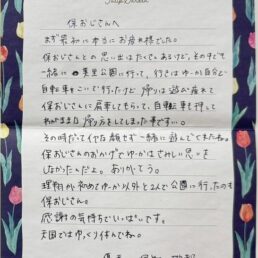 保おじさんへ
まず最初に本当にお疲れ様でした。
保おじさんとの思い出はたくさんあるけど、その中でも
一緒に公園に行って、行きはゆか自分で
自転車をこいで行くけど帰りは遊び疲れて
保おじさんに肩車してもらって、自転車を押して
帰り
その時だってイヤな顔せず一緒に遊んでくれたね。
保おじさんのおかげでゆかはさみしい思いを
しなかったんだよ。ありがとう。
が初めてゆか以外と2人で公園に行ったのも
保おじさん。
感謝の気持ちでいっぱいです。
天国ではゆっくり休んでね。